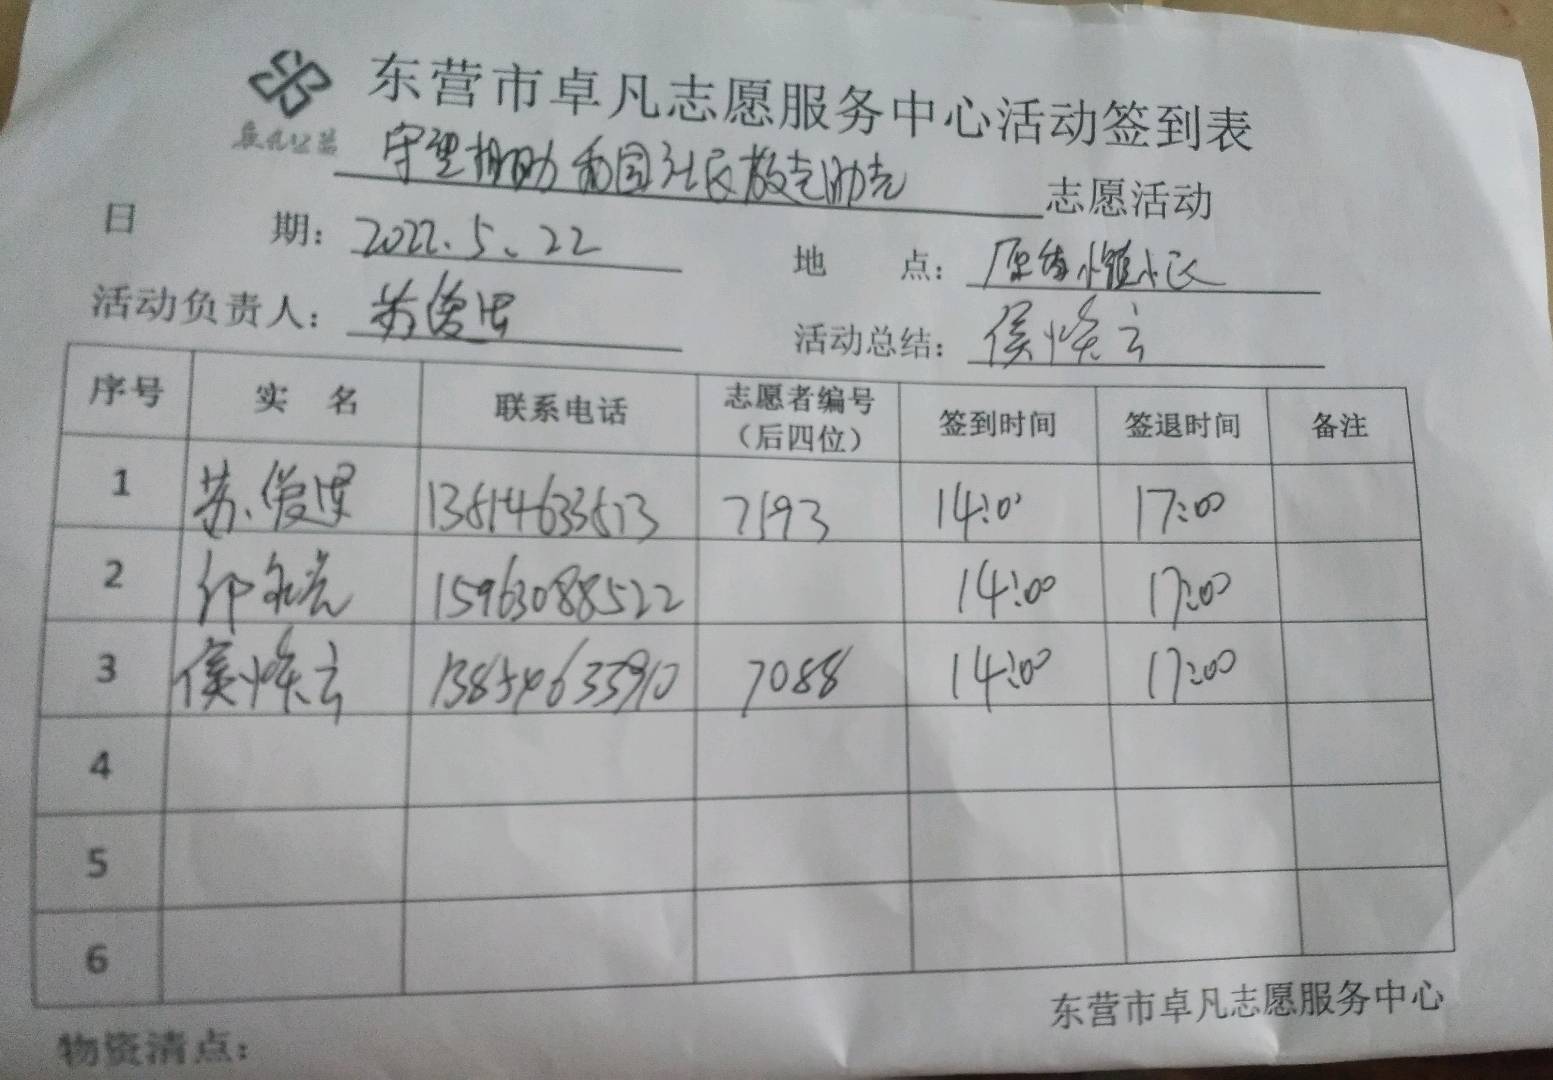 东营市卓凡志愿服务中心活动签到表
卓凡公益
守望相助 社区 志愿活动
日 期: 2022.5.22 地 点: 小区
活动负责人: 苏俊 活动总结: 侯焕云
序号 实 名 联系电话 志愿者编号(后四位) 签到时间 签退时间 备注
1 苏俊 7193 14:0 17:00
2 15963088522 14:00 17:00
3 侯焕云 13854633910 7088 14:00 17:00
4
5
6
东营市卓凡志愿服务中心
物资清点: